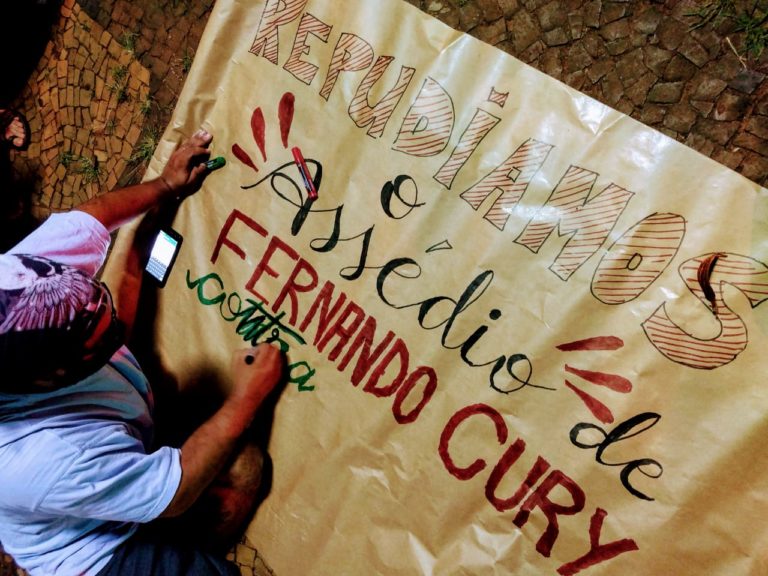 REPUDiAMOS
o
Assédio de
FERNANDO CURY
contra